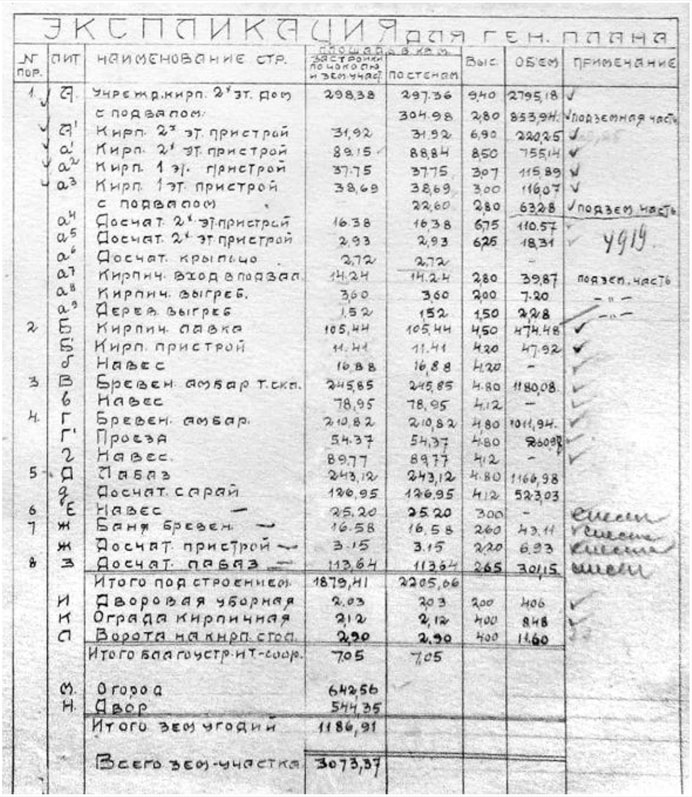 ЭКСПЛИКАЦИЯ ДЛЯ ГЕН. ПЛАНА
N ПОР. ЛИТ НАИМЕНОВАНИЕ СТР. ПЛОЩАДЬ В КВ.М. ЗАСТРОЙКИ ПО ЦОКОЛЮ И ЗЕМ.УЧАСТ. ПО СТЕНАМ ВЫС. ОБЪЕМ ПРИМЕЧАНИЕ
1. А. Учрежд. кирп. 2х эт. дом 298.38 297.36 9,40 2795,18 ✓
с подвалом. 304.98 2,80 853,94. ✓ подземная часть
А¹ Кирп. 2х эт. пристрой 31,92 31.92 6,90 220,25 ✓
а¹ Кирп. 2х эт. пристрой 89.15 88,84 8,50 755,14 ✓
а² Кирп. 1 эт. пристрой 37.75 37.75 3,07 115,89 ✓
а³ Кирп. 1 эт. пристрой 38,69 38,69 3,00 116,07 ✓
с подвалом 22,60 2,80 63.28 ✓ подзем. часть
а⁴ Досчат. 2х эт. пристрой 16.38 16,38 6,75 110.57
а⁵ Досчат. 2х эт. пристрой 2,93 2,93 6,25 18,31 4919.
а⁶ Досчат. крыльцо 2,72 2,72 –
а⁷ Кирпич. вход в подвал. 14.24 14.24 2,80 39,87 подзем. часть
а⁸ Кирпич. выгреб. 3,60 3,60 2,00 7.20 – „ –
а⁹ Дерев. выгреб 1,52 1,52 1,50 2,28 – „ –
2 Б Кирпич. лавка 105,44 105,44 4,50 474.48 ✓
Б¹ Кирп. пристрой 11.41 11.41 4.20 47.92 ✓
б Навес 16,88 16,88 4.20 – ✓
3 В Бревен. амбар т. скл. 245,85 245,85 4.80 1180,08. ✓
в Навес 78,95 78,95 4.12 – ✓
4. Г Бревен. амбар. 210,82 210,82 4,80 1011,94. ✓
Г¹ Проезд 54.37 54,37 4.80 ✓
г Навес. 89.77 89,77 4,12 – ✓
5 Д Лабаз 243,12 243,12 4.80 1166,98
д Досчат. сарай 126,95 126,95 4,12 523,03
6 Е Навес – 25,20 25.20 3.00 – снесен
7 Ж Баня бревен. – 16.58 16,58 2.60 43.11 снесена
ж Досчат. пристрой – 3.15 3.15 2.20 6.93 снесен
8 З Досчат. лабаз – 113,64 113,64 2,65 301,15 снесен
Итого под строением. 1879,41 2205,66
И Дворовая уборная 2.03 2.03 2,00 4.06 ✓
К Ограда кирпичная 2,12 2,12 4.00 8.48 ✓
Л Ворота на кирп. стол. 2,90 2.90 4.00 11.60
Итого благоустр. ит-соор. 7.05 7,05
М. Огород 642,56
Н. Двор 544,35
Итого зем. угодий 1186,91
Всего зем-участка 3073,37